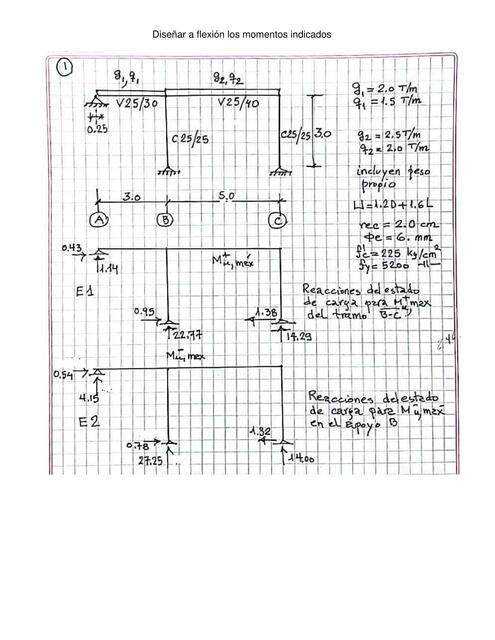 Diseñar a flexión los momentos indicados
1
g₁, q₁
g₂, q₂
V25/30
V25/40
0.25
C25/25
C25/25
3.0
3.0
5.0
A
B
C
g₁ = 2.0 T/m
q₁ = 1.5 T/m
g₂ = 2.5 T/m
q₂ = 2.0 T/m
incluyen peso
propio
U = 1.2D + 1.6L
rec = 2.0 cm
φe = 6. mm
f'c = 225 kg/cm²
fy = 5200 -11-
0.43
1.14
M⁺u, máx
E1
0.95
22.77
1.38
14.29
Reacciones del estado
de carga para M⁺u max
del tramo B-C
M⁻u, max
0.54
4.15
E2
0.78
27.25
1.32
14.00
Reacciones del estado
de carga para M⁻u, max
en el apoyo B